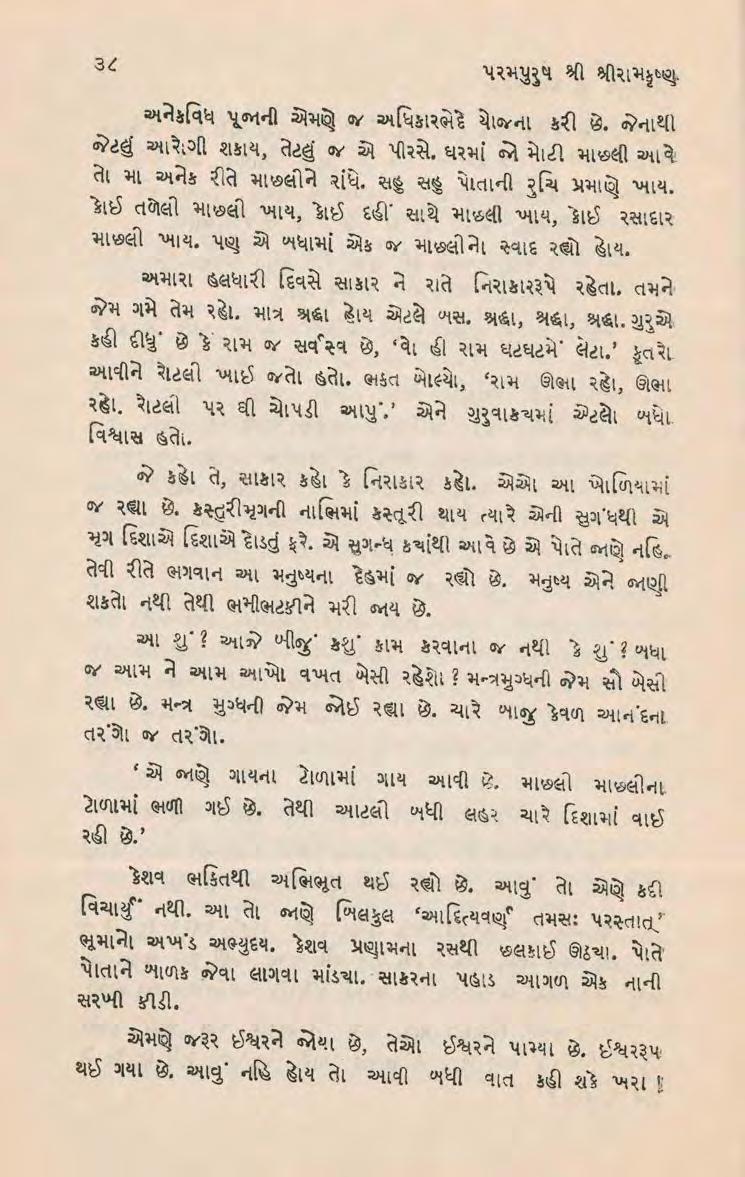 ૩૮
પરમપુરુષ શ્રી શ્રીરામકૃષ્ણ
અનેકવિધ પૂજાની એમણે જ અધિકારભેદે યોજના કરી છે. જેનાથી
જેટલું આરોગી શકાય, તેટલું જ એ પીરસે. ઘરમાં જો મોટી માછલી આવે
તો મા અનેક રીતે માછલીને રાંધે. સહુ સહુ પોતાની રુચિ પ્રમાણે ખાય.
કોઈ તળેલી માછલી ખાય, કોઈ દહીં સાથે માછલી ખાય, કોઈ રસાદાર
માછલી ખાય. પણ એ બધામાં એક જ માછલીનો સ્વાદ રહ્યો હોય.
અમારા હલધારી દિવસે સાકાર ને રાતે નિરાકારરૂપે રહેતા. તમને
જેમ ગમે તેમ રહો. માત્ર શ્રદ્ધા હોય એટલે બસ. શ્રદ્ધા, શ્રદ્ધા, શ્રદ્ધા. ગુરુએ
કહી દીધું છે કે રામ જ સર્વસ્વ છે, ‘વો હી રામ ઘટઘટમેં લેટા.’ કૂતરો
આવીને રોટલી ખાઈ જતો હતો. ભક્ત બોલ્યો, ‘રામ ઊભા રહો, ઊભા
રહો. રોટલી પર ઘી ચોપડી આપું.’ એને ગુરુવાક્યમાં એટલો બધો
વિશ્વાસ હતો.
જે કહો તે, સાકાર કહો કે નિરાકાર કહો. એઓ આ ખોળિયામાં
જ રહ્યા છે. કસ્તુરીમૃગની નાભિમાં કસ્તૂરી થાય ત્યારે એની સુગંધથી એ
મૃગ દિશાએ દિશાએ દોડતું ફરે. એ સુગન્ધ કયાંથી આવે છે એ પોતે જાણે નહિ.
તેવી રીતે ભગવાન આ મનુષ્યના દેહમાં જ રહ્યો છે. મનુષ્ય એને જાણી
શકતો નથી તેથી ભમીભટકીને મરી જાય છે.
આ શું ? આજે બીજું કશું કામ કરવાના જ નથી કે શું ? બધા
જ આમ ને આમ આખો વખત બેસી રહેશો ? મન્ત્રમુગ્ધની જેમ સૌ બેસી
રહ્યા છે. મન્ત્ર મુગ્ધની જેમ જોઈ રહ્યા છે. ચારે બાજુ કેવળ આનંદના
તરંગો જ તરંગો.
‘એ જાણે ગાયના ટોળામાં ગાય આવી છે. માછલી માછલીના
ટોળામાં ભળી ગઈ છે. તેથી આટલી બધી લહર ચારે દિશામાં વાઈ
રહી છે.’
કેશવ ભક્તિથી અભિભૂત થઈ રહ્યો છે. આવું તો એણે કદી
વિચાર્યું નથી. આ તો જાણે બિલકુલ ‘આદિત્યવર્ણ તમસઃ પરસ્તાત્’
ભૂમાનો અખંડ અભ્યુદય. કેશવ પ્રણામના રસથી છલકાઈ ઊઠયા. પોતે
પોતાને બાળક જેવા લાગવા માંડયા. સાકરના પહાડ આગળ એક નાની
સરખી કીડી.
એમણે જરૂર ઈશ્વરને જોયા છે, તેઓ ઈશ્વરને પામ્યા છે. ઈશ્વરરૂપ
થઈ ગયા છે. આવું નહિ હોય તો આવી બધી વાત કહી શકે ખરા !